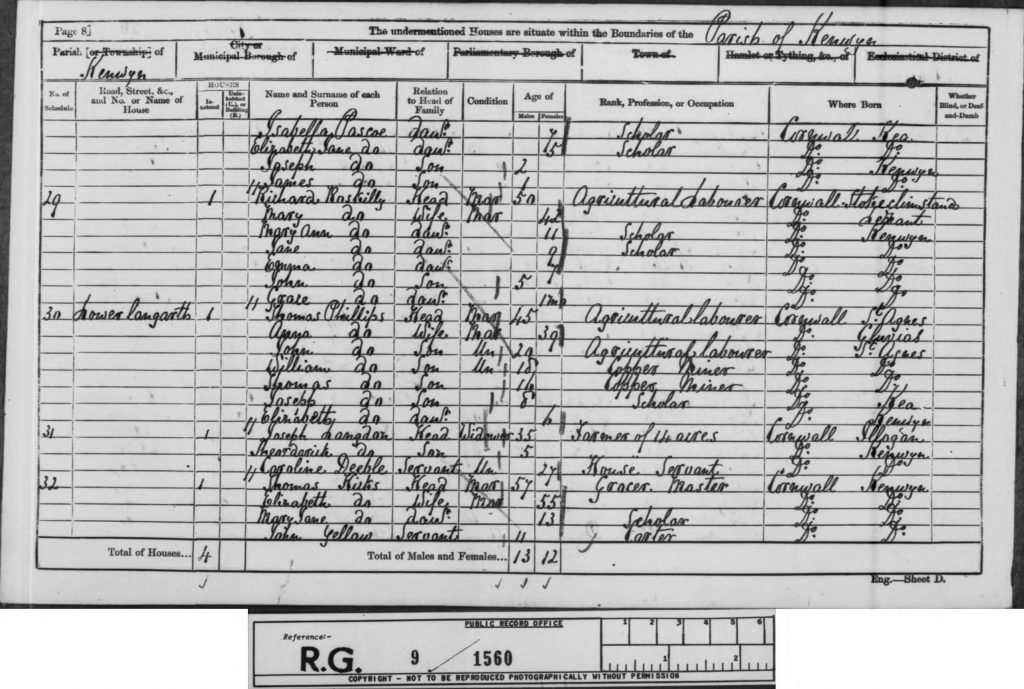 Page 8] The undermentioned Houses are situate within the Boundaries of the Parish of Kenwyn
Parish [or Township] of Kenwyn City or Municipal Borough of Municipal Ward of Parliamentary Borough of Town of Hamlet or Tything, &c., of Ecclesiastical District of
No. of Schedule Road, Street, &c., and No. or Name of House HOUSES Inhabited Uninhabited (U.), or Building (B.) Name and Surname of each Person Relation to Head of Family Condition Age of Males Females Rank, Profession, or Occupation Where Born Whether Blind, or Deaf-and-Dumb
Isabella Pascoe daur. 7 Scholar Cornwall Kea
Elizabeth Jane do daur. 15 Scholar Do Do
Joseph do Son 2 Do Kenwyn
James do Son 1 Do Do
29 1 Richard Head Mar 50 Agricultural Labourer Cornwall Stokeclimsland
Mary do Wife Mar 42 Do
Mary Ann do daur. 11 Scholar Do Kenwyn
Jane do daur. 9 Scholar Do Do
Emma do daur. 7 Do Do
John do Son 5 Do Do
Grace do daur. 1 mo Do Do
30 Lower Langarth 1 Thomas Phillips Head Mar 45 Agricultural labourer Cornwall St. Agnes
Anna do Wife Mar 39 Do Gluvias
John do Son Un 20 Agricultural labourer Do St. Agnes
William do Son Un 18 Copper Miner Do Do
Thomas do Son 16 Copper Miner Do Do
Joseph do Son 8 Scholar Do Kea
Elizabeth do daur. 6 Do Kenwyn
31 1 Joseph Langdon Head Widower 35 Farmer of 14 acres Cornwall Illogan
do Son 5 Do Kenwyn
Caroline Deeble Servant Un 27 House Servant Do Do
32 1 Thomas Head Mar 57 Grocer Master Cornwall Kenwyn
Elizabeth do Wife Mar 55 Do Do
Mary Jane do daur. 13 Scholar Do Do
John Yellow Servant 11 Carter Do Do
Total of Houses... 4 Total of Males and Females... 13 12
Eng.—Sheet D.
PUBLIC RECORD OFFICE 1 2 3 4 5 6
Reference:-
R.G. 9 / 1560 1 2
COPYRIGHT - NOT TO BE REPRODUCED PHOTOGRAPHICALLY WITHOUT PERMISSION